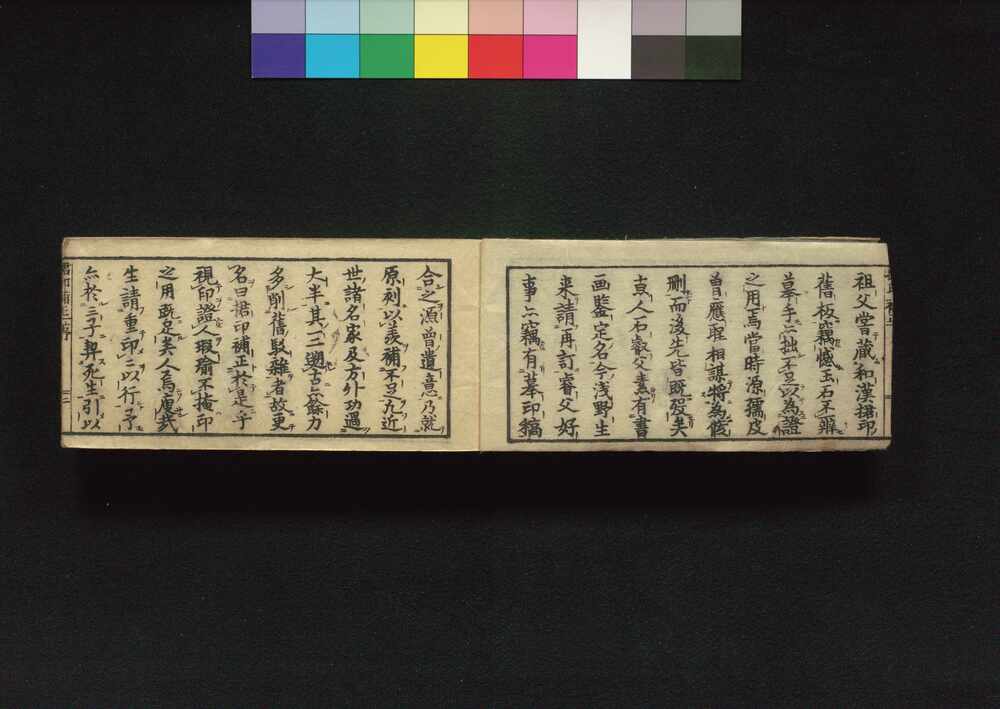 祖父嘗蔵和漢搨印
舊板竊憾玉石不辨
摹手亦拙不足以為證
之用焉當時源孺皮
曽應聖相謀将為
刪而後先皆既歿矣
真人石叡父素有書
画鑑定名令浅野生
来請再訂睿父好
事亦竊有摹印稿
合之源曽遺意乃就
原刻以羨補不足九近
世諸名家及方外功過
大半其一二遡古亦餘力
多削舊駁雑者故更
名曰搨印補正於是乎
視印證人瑕瑜不掩印
之用既足矣人焉廋哉
生請重印亡以行予
亦於三子契死生引以